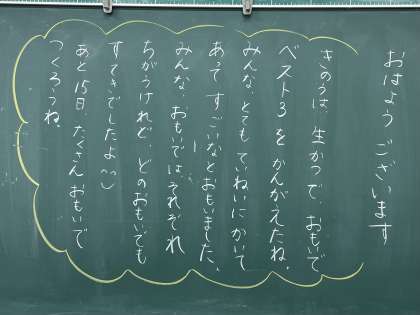 おはよう ございます
きのうは、生かつで、おもいで
ベスト3を かんがえたね。
みんな、とても ていねいに かいて
あって すごいなとおもいました。
みんな、おもいでは それぞれ
ちがうけれど、どのおもいでも
すてきでしたよ
あと15日、たくさん おもいで
つくろうね。